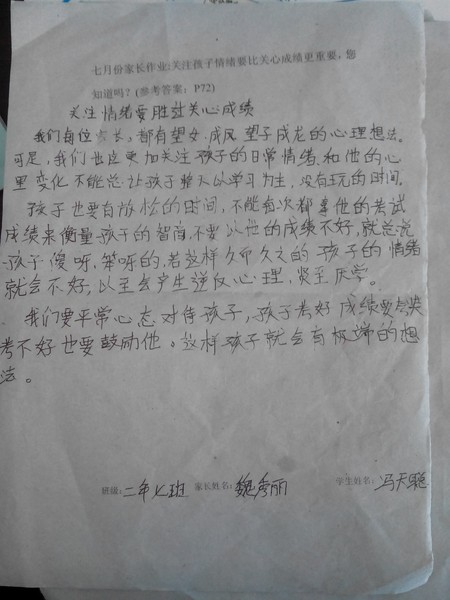 七月份家长作业:关注孩子情绪要比关心成绩更重要，您
知道吗？(参考答案：P72)
关注情绪要胜过关心成绩
我们每位家长，都有望女成凤 望子成龙的心理想法。
可是，我们也应更加关注孩子的日常情绪，和他的心
里变化 不能总让孩子整天以学习为主，没有玩的时间。
孩子也要有放松的时间，不能每次都拿他的考试
成绩来衡量孩子的智商，不要以他的成绩不好，就总说
孩子傻呀，笨呀的，若这样久而久之的孩子的情绪
就会不好，以至会产生逆反心理，炎至厌学。
我们要平常心态对待孩子，孩子考好成绩要点奖
考不好也要鼓励他。这样孩子就会有极端的想
法。
班级:二年七班 家长姓名:魏秀丽 学生姓名:冯天聪